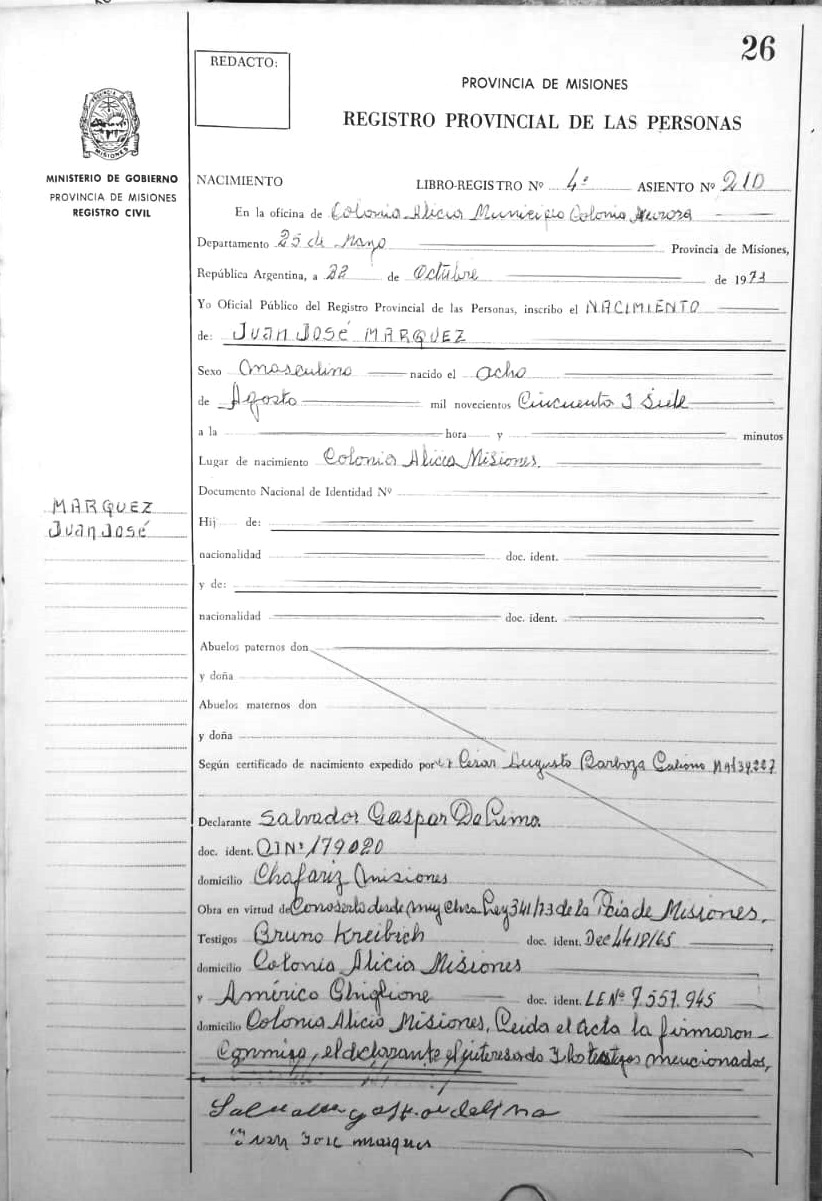 26
REDACTO:
PROVINCIA DE MISIONES
REGISTRO PROVINCIAL DE LAS PERSONAS
PROVINCIA DE MISIONES
MINISTERIO DE GOBIERNO
PROVINCIA DE MISIONES
REGISTRO CIVIL
NACIMIENTO LIBRO-REGISTRO Nº 4º ASIENTO Nº 210
En la oficina de Colonia Alicia Municipio Colonia Aurora
Departamento 25 de Mayo Provincia de Misiones,
República Argentina, a 22 de Octubre de 1973
Yo Oficial Público del Registro Provincial de las Personas, inscribo el NACIMIENTO
de: Juan José MARQUEZ
Sexo Masculino nacido el ocho
de Agosto mil novecientos Cincuenta y Siete
a la hora y minutos
Lugar de nacimiento Colonia Alicia Misiones.
Documento Nacional de Identidad Nº
MARQUEZ
Juan José
Hij de:
nacionalidad doc. ident.
y de:
nacionalidad doc. ident.
Abuelos paternos don
y doña
Abuelos maternos don
y doña
Según certificado de nacimiento expedido por Cesar Augusto Barboza
Declarante Salvador Gaspar Da Lima
doc. ident. Nº 179020
domicilio Chafariz Misiones
Obra en virtud de Conoserlo desde muy Ley 341/73 de la Pcia de Misiones.
Testigos Bruno Kreibich doc. ident.
domicilio Colonia Alicia Misiones
y Américo Ghiglione doc. ident. LE Nº 7.557.945
domicilio Colonia Alicia Misiones, Leida el Acta la firmaron
Conmigo, el declarante el interesado y los testigos mencionados,
Juan Jose marques